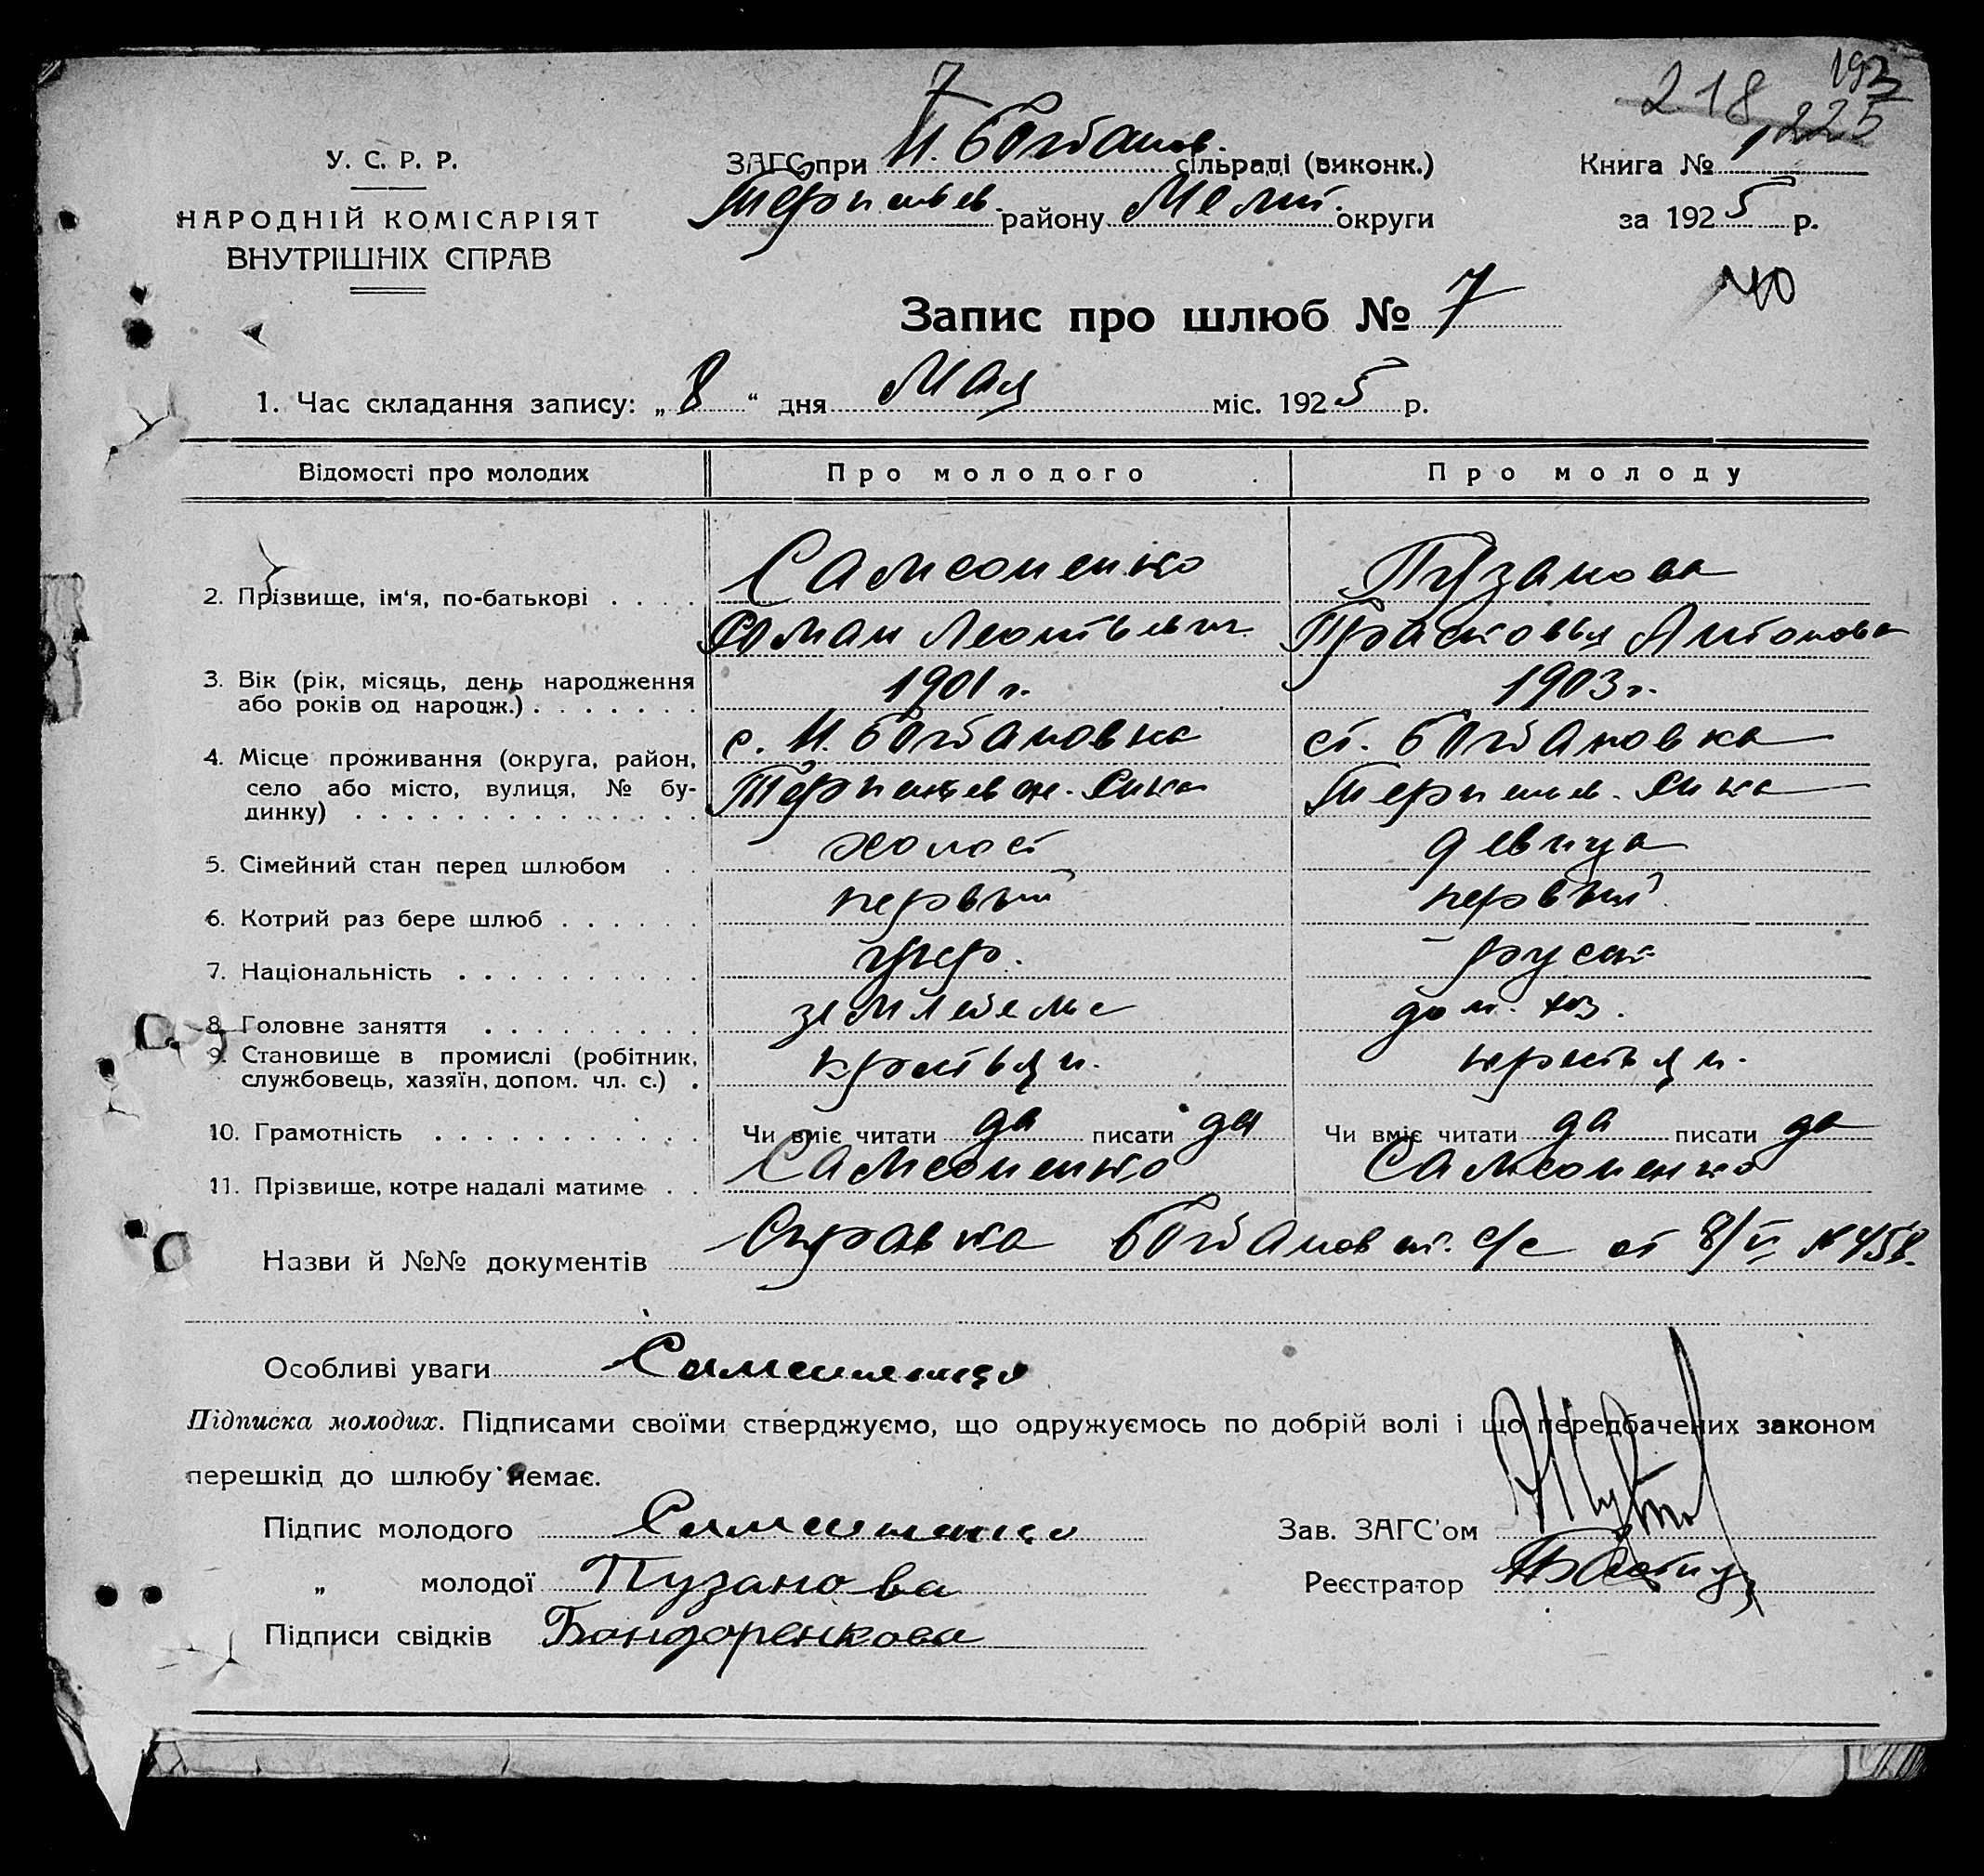 218 193
225
7
У. С. Р. Р.
НАРОДНІЙ КОМІСАРІЯТ
ВНУТРІШНІХ СПРАВ
ЗАГС при Н. Богданов. сільраді (виконк.)
Терпеньев. району Мелит. округи
Книга № 1
за 1925 р.
40
Запис про шлюб № 7
1. Час складання запису: „8“ дня Мая міс. 1925 р.
Відомості про молодих Про молодого Про молоду
2. Прізвище, ім'я, по-батькові . . . . Самсоненко Пузанова
Роман Леонтьевич Прасковья Антонова
3. Вік (рік, місяць, день народження або років од народж.) . . . . . . . 1901 г. 1903 г.
4. Місце проживання (округа, район, село або місто, вулиця, № будинку) . . . с. Н. Богдановка ст. Богдановка
Терпеньевск. Р-на Терпеньев. Р-на
5. Сімейний стан перед шлюбом . . холост девица
6. Котрий раз бере шлюб . . . . . . первый первый
7. Національність . . . . . . . . . . укр. русск
8. Головне заняття . . . . . . . . . земледелие дом. хоз.
9. Становище в промислі (робітник, службовець, хазяїн, допом. чл. с.) . крестьян. крестьян.
10. Грамотність . . . . . . . . . . . Чи вміє читати да писати да Чи вміє читати да писати да
11. Прізвище, котре надалі матиме . . Самсоненко Самсоненко
Назви й №№ документів Справка Богдановск. с/с от 8/V № 458.
Особливі уваги Самсоненко
Підписка молодих. Підписами своїми стверджуємо, що одружуємось по добрій волі і що передбачених законом
перешкід до шлюбу немає.
Підпис молодого Самсоненко Зав. ЗАГС'ом
„ молодої Пузанова Реєстратор
Підписи свідків Бондаренкова